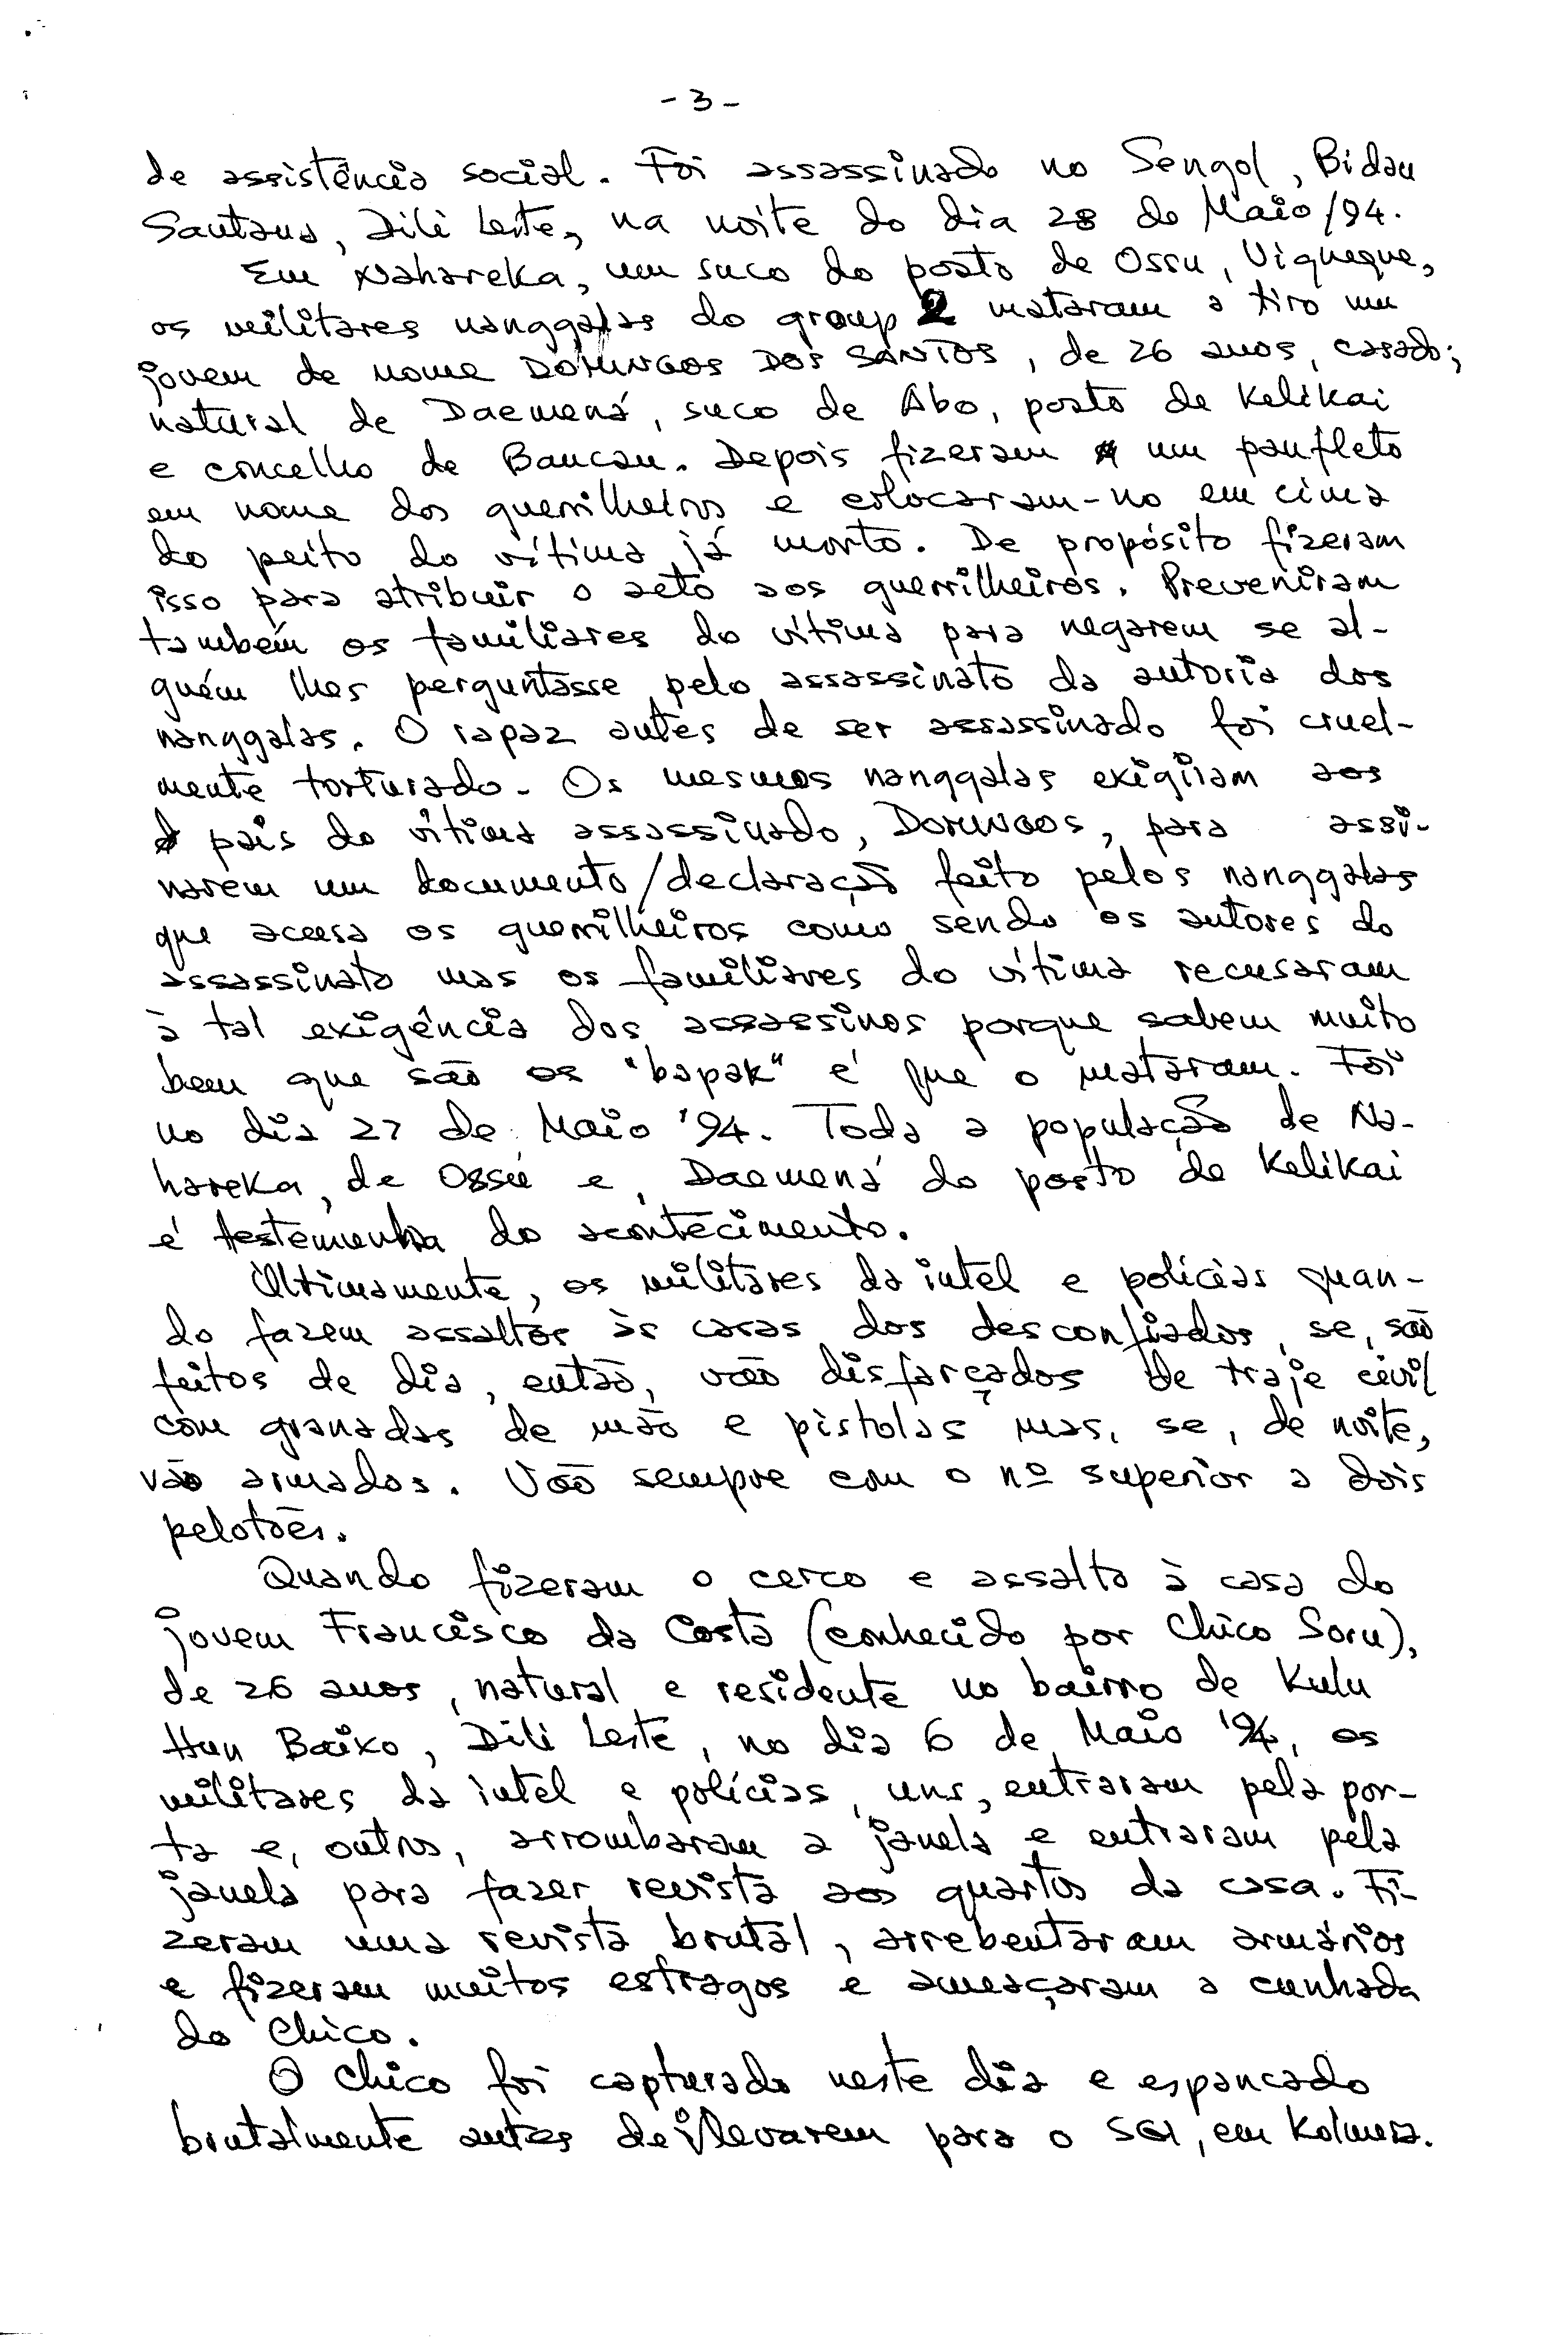 - 3 -
de assistência social. Foi assassinado no Sengol, Bidau
Santana, Díli Leste, na noite do dia 28 de Maio/94.
Em Nahareka, um suco do posto de Ossu, Viqueque,
os militares nanggalas do group 2 mataram a tiro um
jovem de nome DOMINGOS DOS SANTOS, de 26 anos, casado;
natural de Daemená, suco de Abo, posto de Kelikai
e concelho de Baucau. Depois fizeram um panfleto
em nome dos guerrilheiros e colocaram-no em cima
do peito do vítima já morto. De propósito fizeram
isso para atribuir o acto aos guerrilheiros. Preveniram
também os familiares do vítima para negarem se al-
guém lhes perguntasse pelo assassinato da autoria dos
nanggalas. O rapaz antes de ser assassinado foi cruel-
mente torturado. Os mesmos nanggalas exigiram aos
pais do vítima assassinado, DOMINGOS, para assi-
narem um documento/declaração feito pelos nanggalas
que acusa os guerrilheiros como sendo os autores do
assassinato mas os familiares do vítima recusaram
à tal exigência dos assassinos porque sabem muito
bem que são os "bapak" é que o mataram. Foi
no dia 27 de Maio '94. Toda a população de Na-
hareka, de Ossu e, Daemená do posto de Kelikai
é testemunha do acontecimento.
Últimamente, os militares da intel e polícias quan-
do fazem assaltos às casas dos desconfiados, se, são
feitos de dia, então, vão disfarçados de traje civil
com granadas de mão e pistolas mas, se, de noite,
vão armados. Vão sempre com o nº superior a dois
pelotões.
Quando fizeram o cerco e assalto à casa do
jovem Francisco da Costa (conhecido por Chico Soru),
de 26 anos, natural e residente no bairro de Kulu
Hun Baixo, Díli Leste, no dia 6 de Maio '94, os
militares da intel e polícias, uns, entraram pela por-
ta e, outros, arrombaram a janela e entraram pela
janela para fazer revista aos quartos da casa. Fi-
zeram uma revista brutal, arrebentaram armários
e fizeram muitos estragos e ameaçaram a cunhada
do Chico.
O Chico foi capturado neste dia e espancado
brutalmente antes de levarem para o SGI, em Kolmera.